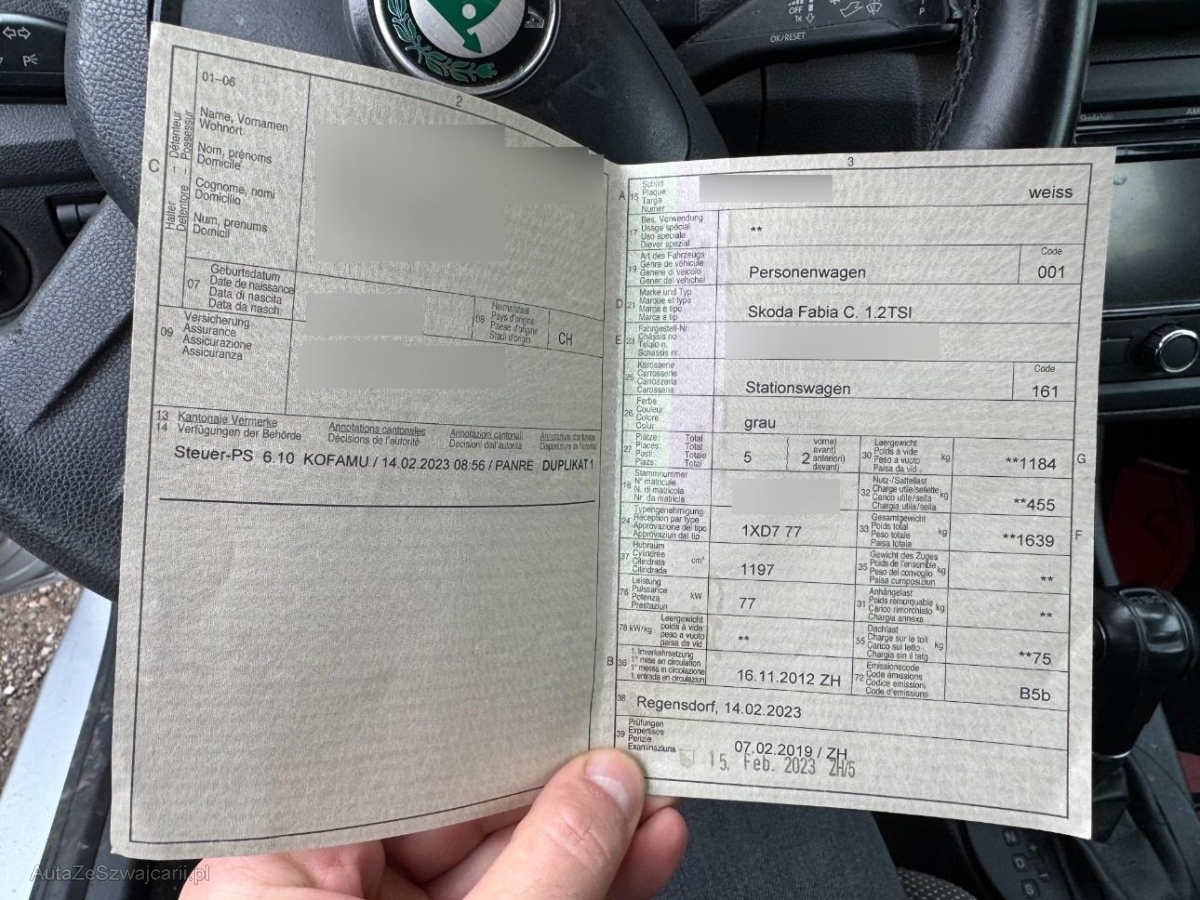 OFF
1x
OK/RESET
P
A
01–06
2
C
Halter – Détenteur
Detentore – Possessur
Name, Vornamen
Wohnort
Nom, prénoms
Domicile
Cognome, nomi
Domicilio
Num, prenums
Domicil
07
Geburtsdatum
Date de naissance
Data di nascita
Data da nasch.
08
Heimatstaat
Pays d'origine
Paese d'origine
Stadi d'origin
CH
09
Versicherung
Assurance
Assicurazione
Assicuranza
13 Kantonale Vermerke
14 Verfügungen der Behörde
Annotations cantonales
Décisions de l'autorité
Annotazioni cantonali
Decisioni dell'autorità
Steuer-PS 6.10 KOFAMU / 14.02.2023 08:56 / PANRE DUPLIKAT 1
3
A 15
Schild
Plaque
Targa
Numer
weiss
17
Bes. Verwendung
Usage spécial
Uso speciale
Diever spezial
**
19
Art des Fahrzeugs
Genre de véhicule
Genere di veicolo
Gener dal vehichel
Personenwagen
Code
001
D 21
Marke und Typ
Marque et type
Marca e tipo
Marca e tip
Skoda Fabia C. 1.2TSI
E 23
Fahrgestell-Nr.
Châssis no
Telaio n.
Schassis nr.
25
Karosserie
Carrosserie
Carrozzeria
Carossaria
Stationswagen
Code
161
26
Farbe
Couleur
Colore
Colur
grau
27
Plätze: Total
Places: Total
Posti: Totale
Plazs: Total
5
2
vorne)
avant)
anteriori)
davant)
30
Leergewicht
Poids à vide
Peso a vuoto
Paisa da vid
kg
**1184
G
18
Stammnummer
N° matricule
N. di matricola
Nr. da matricla
32
Nutz-/Sattellast
Charge utile/sellette
Carico utile/sella
Chargia utila/sella
kg
**455
24
Typengenehmigung
Réception par type
Approvazione del tipo
Approvaziun dal tip
1XD7 77
33
Gesamtgewicht
Poids total
Peso totale
Paisa totala
kg
**1639
F
37
Hubraum
Cylindrée
Cilindrata
Cilindrada
cm³
1197
35
Gewicht des Zuges
Poids de l'ensemble
Peso del convoglio
Paisa cumposiziun
kg
**
76
Leistung
Puissance
Potenza
Prestaziun
kW
77
31
Anhängelast
Poids remorquable
Carico rimorchiato
Chargia annexa
kg
**
78 kW/kg
Leergewicht
poids à vide
peso a vuoto
paisa da vid
**
55
Dachlast
Charge sur le toit
Carico sul tetto
Chargia sin il tetg
kg
**75
B 36
1. Inverkehrsetzung
1re mise en circulation
1a messa in circolazione
1. entrada en circulaziun
16.11.2012 ZH
72
Emissionscode
Code émissions
Codice emissioni
Code d'emissiuns
B5b
38
Regensdorf, 14.02.2023
39
Prüfungen
Expertises
Perizie
Examinaziuns
07.02.2019 / ZH
15. Feb. 2023 ZH/5
AutaZeSzwajcarii.pl